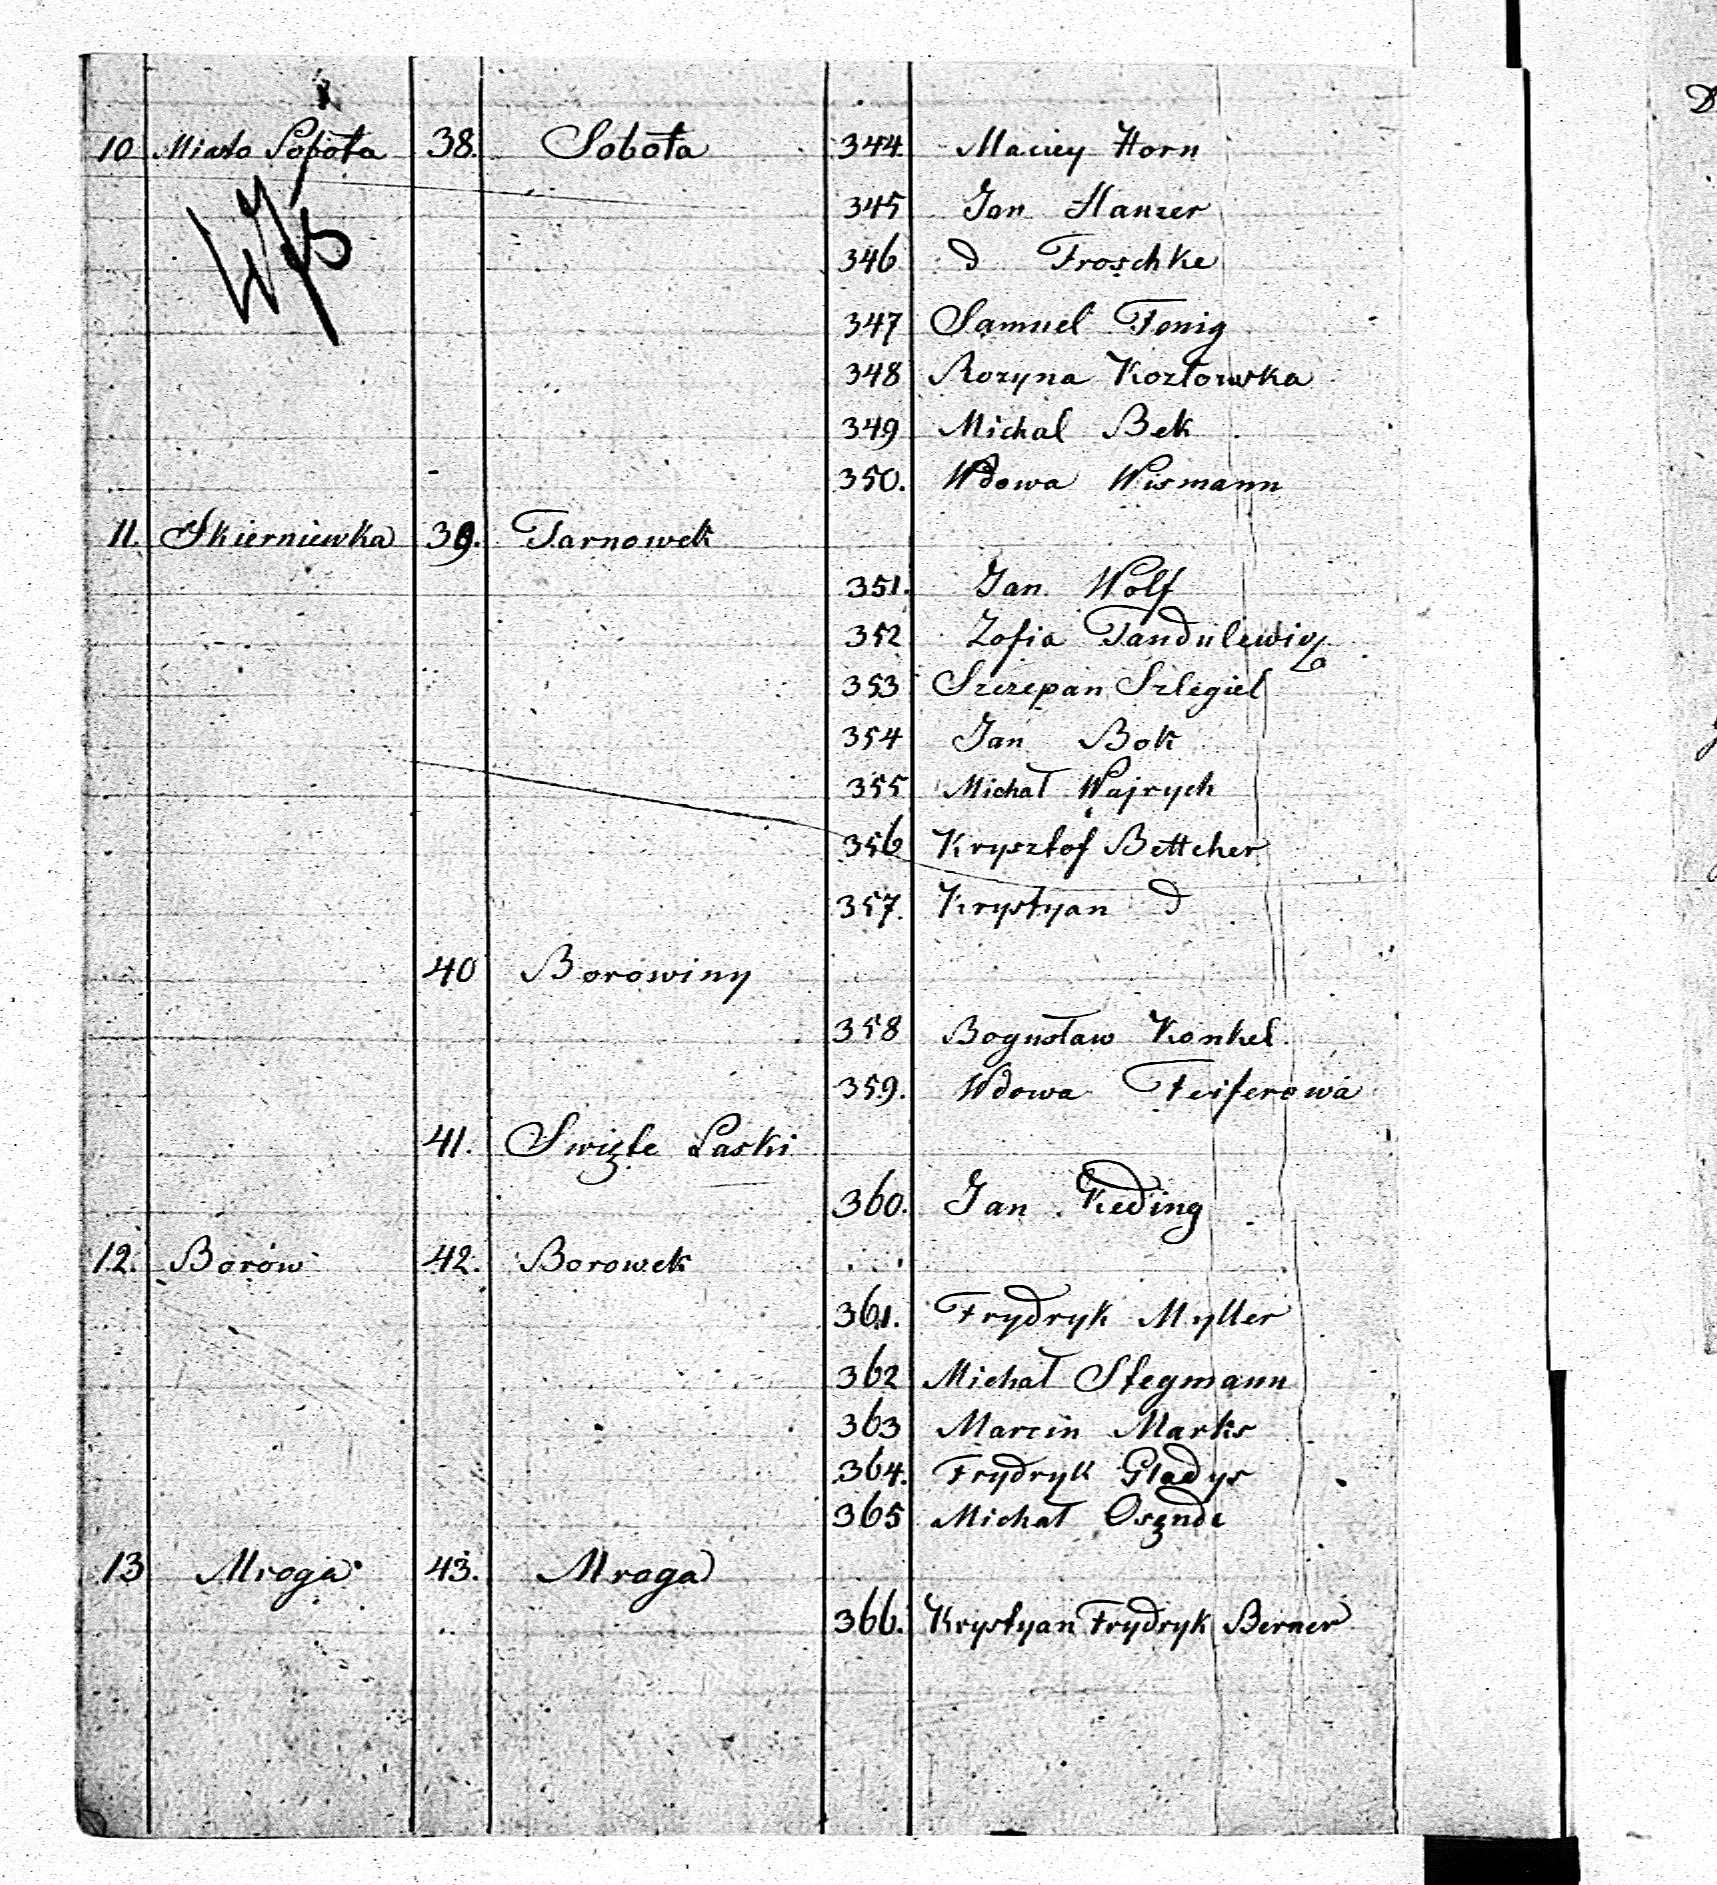 10 Miasto Sobota 38. Sobota 344 Maciey Horn
345 Jan Hanzer
346 d Froschke
347 Samuel Fenig
348 Rozyna Kozłowska
349 Michal Bek
350. Wdowa Wismann
11. Skierniewka 39. Tarnowek
351. Jan Wolf
352 Zofia Tandulewicz
353 Szczepan Szlegiel
354 Jan Bok
355 Michał Wajrych
356 Krysztof Bettcher
357. Krystyan d
40 Borowiny
358 Bogusław Konkel
359. Wdowa Feiferowa
41. Swięte Laski
360. Jan Keding
12. Borów 42. Borowek
361. Frydryk Myller
362 Michał Stegmann
363 Marcin Marks
364. Frydryk Gladys
365 Michał
13 Mroga 43. Mroga
366. Krystyan Frydryk Berner